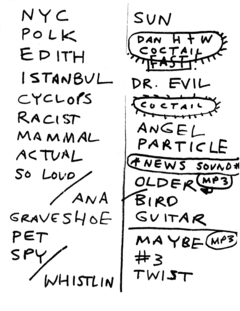 NYC
POLK
EDITH
ISTANBUL
CYCLOPS
RACIST
MAMMAL
ACTUAL
SO LOUD
ANA
GRAVESHOE
PET
SPY
WHISTLIN
SUN
DAN H + W
COCTAIL
FAST
DR. EVIL
COCTAIL
ANGEL
PARTICLE
NEWS SOUND
OLDER MP3
BIRD
GUITAR
MAYBE MP3
#3
TWIST